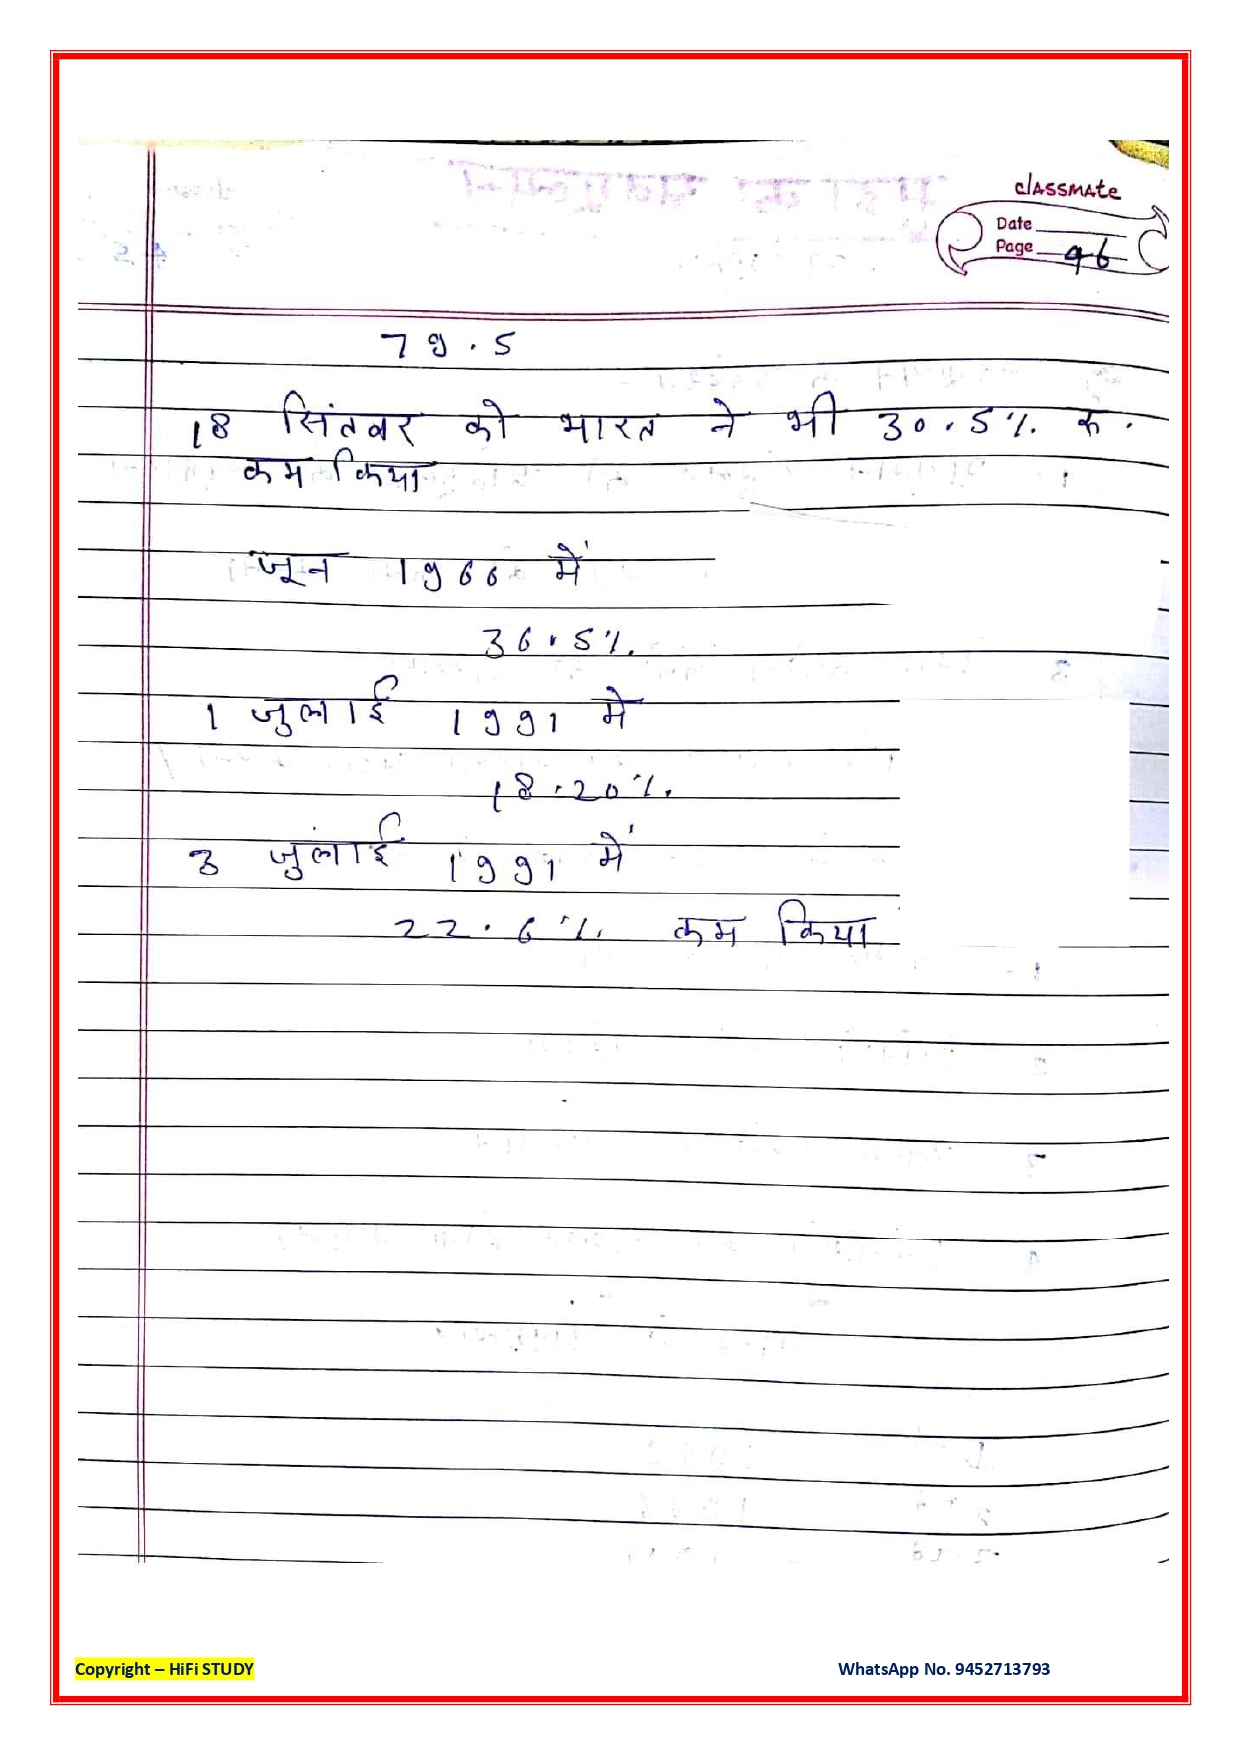 classmate
Date
Page 96
79.5
18 सितंबर को भारत ने भी 30.5% रु.
कम किया
जून 1966 में
36.5%
1 जुलाई 1991 में
18.20%
3 जुलाई 1991 में
22.6% कम किया
Copyright – HiFi STUDY
WhatsApp No. 9452713793